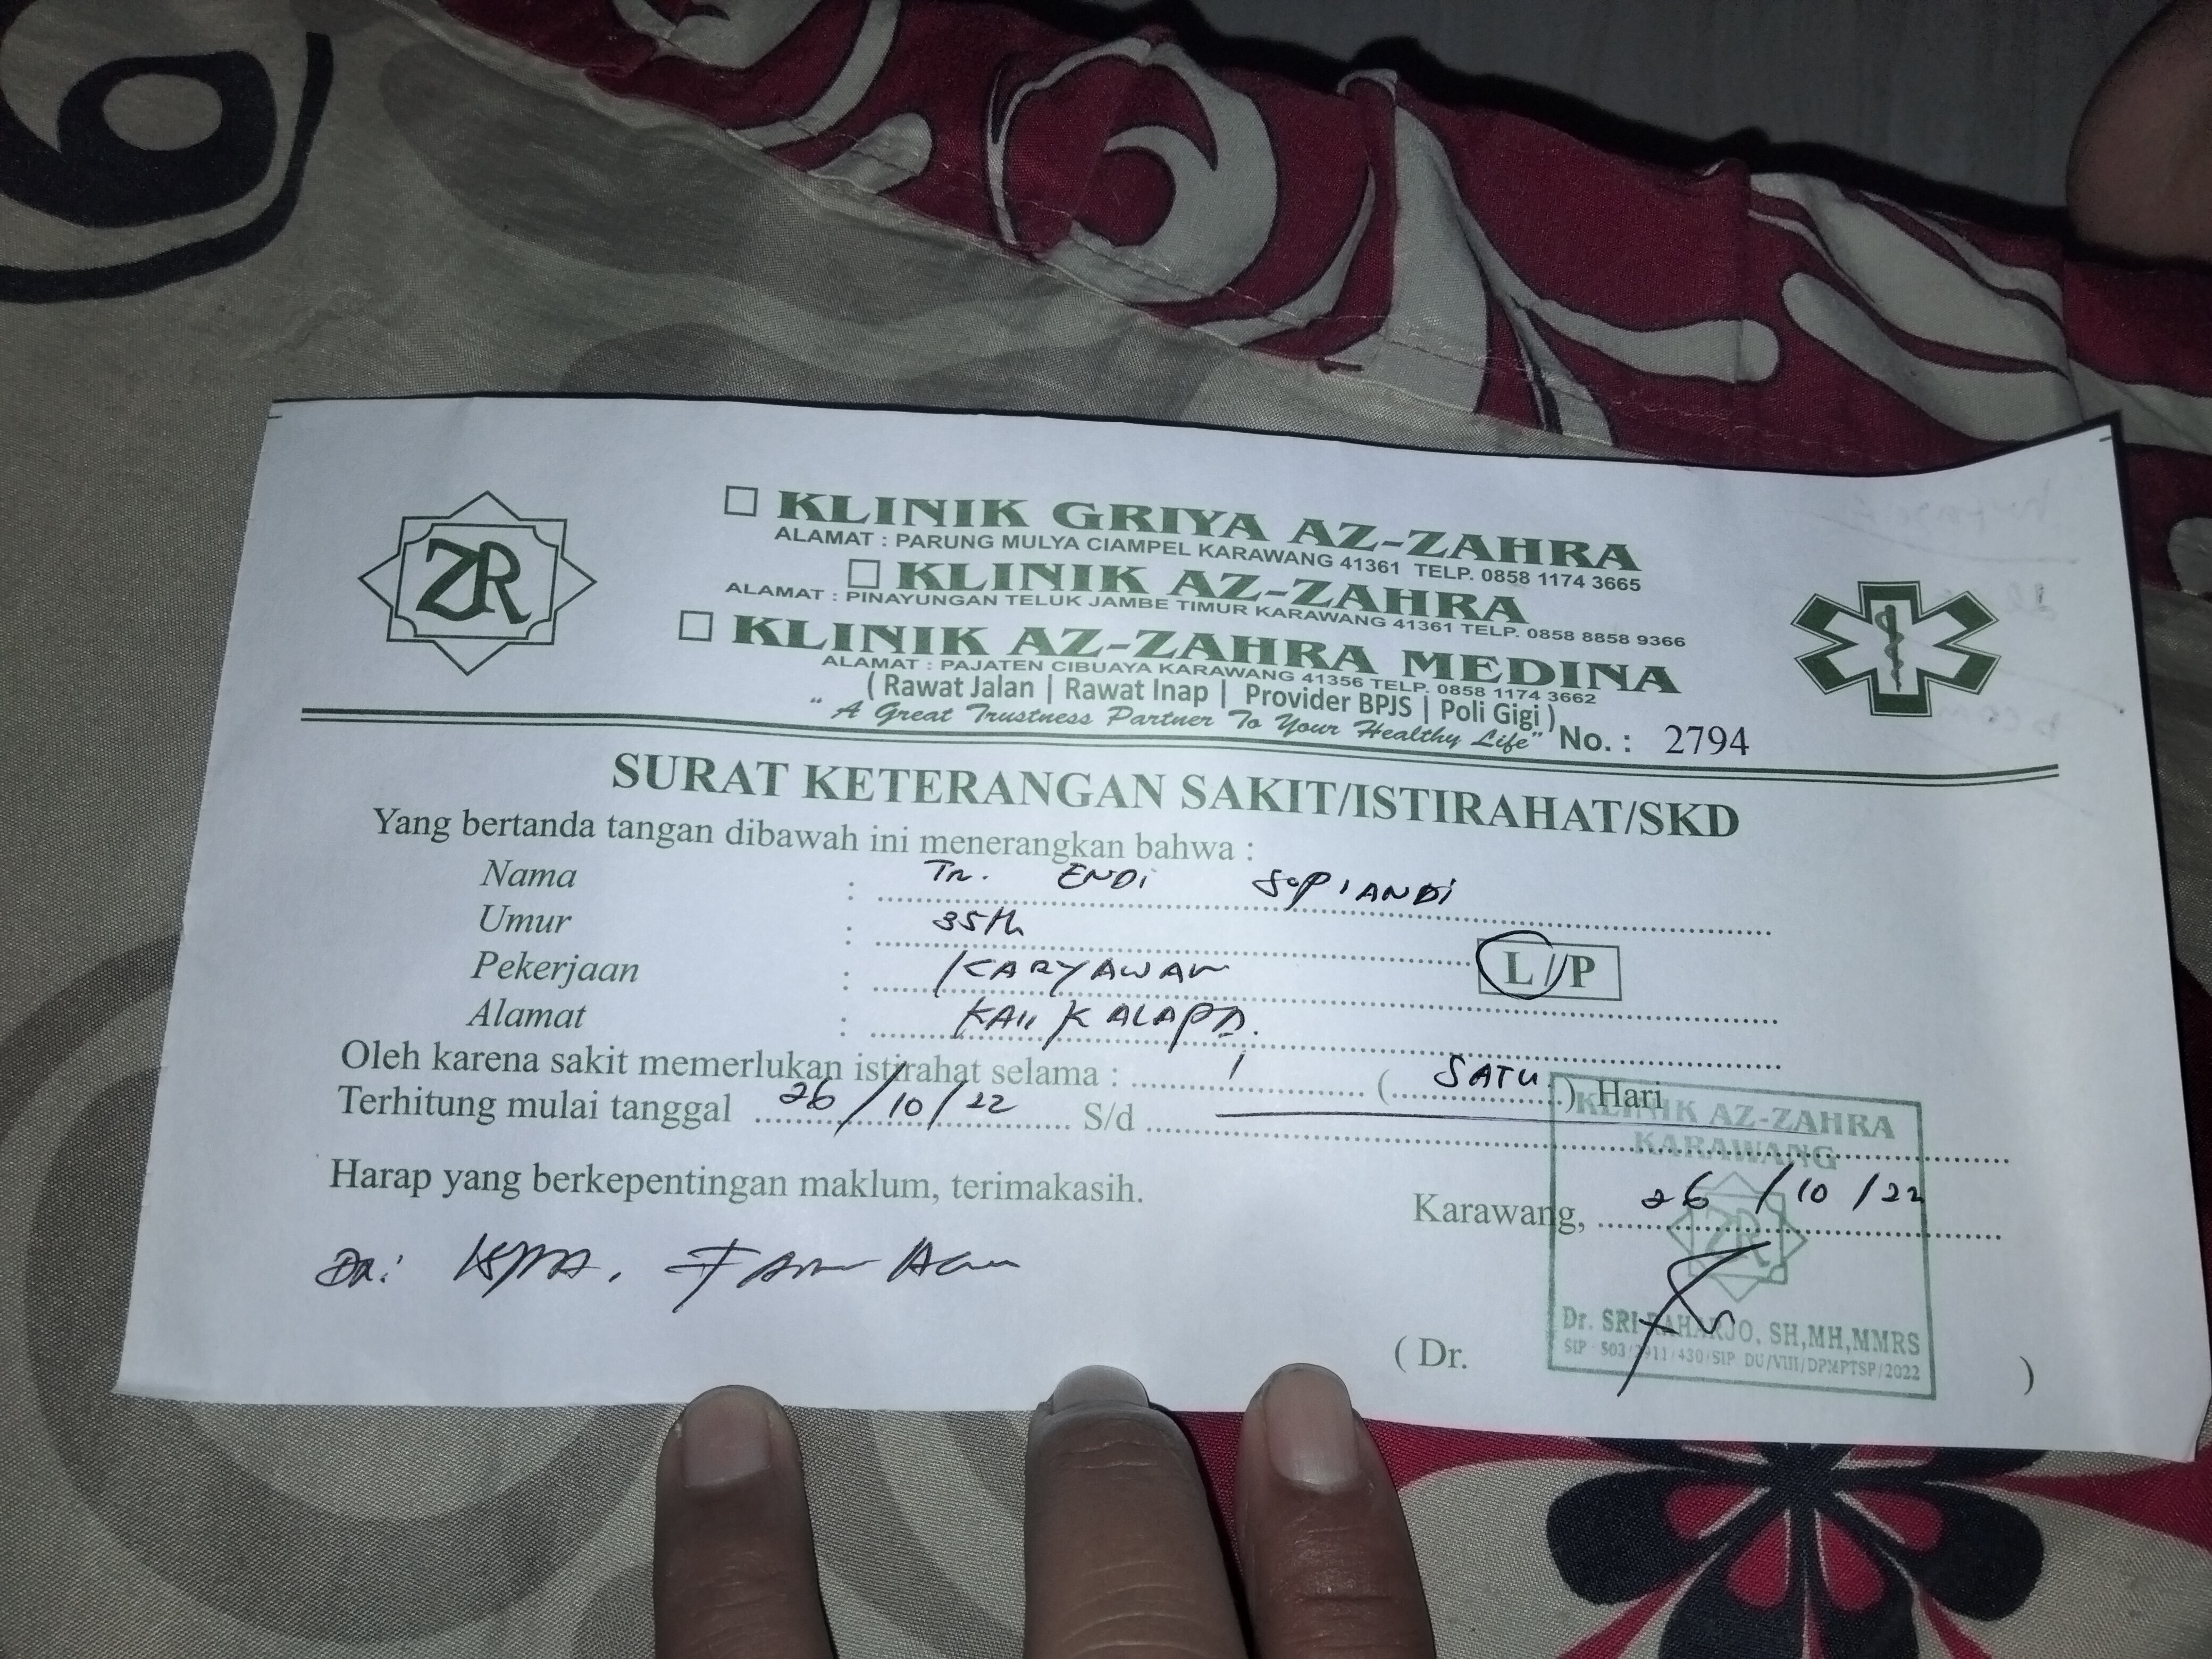 ZR
KLINIK GRIYA AZ-ZAHRA
ALAMAT : PARUNG MULYA CIAMPEL KARAWANG 41361 TELP. 0858 1174 3665
KLINIK AZ-ZAHRA
ALAMAT : PINAYUNGAN TELUK JAMBE TIMUR KARAWANG 41361 TELP. 0858 8858 9366
KLINIK AZ-ZAHRA MEDINA
ALAMAT : PAJATEN CIBUAYA KARAWANG 41356 TELP. 0858 1174 3662
( Rawat Jalan | Rawat Inap | Provider BPJS | Poli Gigi )
“ A Great Trustness Partner To Your Healthy Life”
No. : 2794
SURAT KETERANGAN SAKIT/ISTIRAHAT/SKD
Yang bertanda tangan dibawah ini menerangkan bahwa :
Nama : Tn. ENDI SOPIANDI
Umur : 35th L//P
Pekerjaan : KARYAWAN
Alamat : KALAPA.
Oleh karena sakit memerlukan istirahat selama : 1 ( SATU ) Hari
Terhitung mulai tanggal 26/10/22 S/d
Harap yang berkepentingan maklum, terimakasih.
Karawang, 26/10/22
KLINIK AZ-ZAHRA
KARAWANG
ZR
Dr. SRI RAHARJO, SH,MH,MMRS
SIP 503/ 911/430/SIP DU/VIII/DPMPTSP/2022
( Dr. )